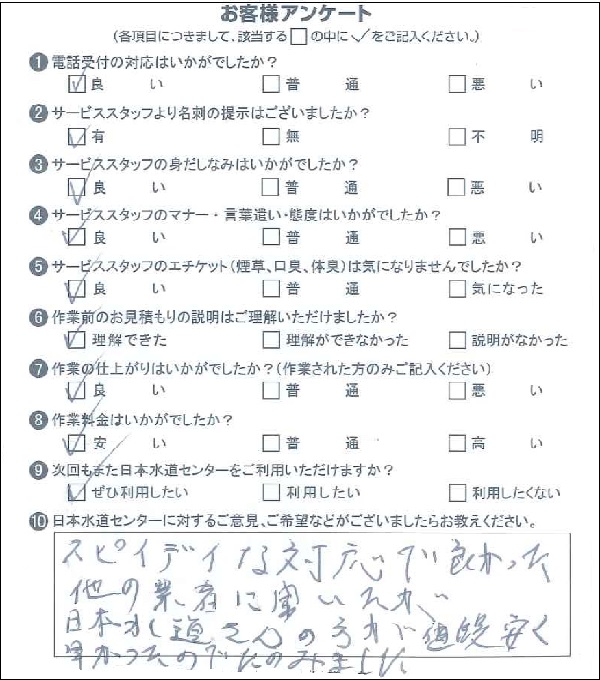 お客様アンケート
(各項目につきまして、該当する□の中に✓をご記入ください。)
❶電話受付の対応はいかがでしたか？
☑良い □普通 □悪い
❷サービススタッフより名刺の提示はございましたか？
☑有 □無 □不明
❸サービススタッフの身だしなみはいかがでしたか？
☑良い □普通 □悪い
❹サービススタッフのマナー・言葉遣い・態度はいかがでしたか？
☑良い □普通 □悪い
❺サービススタッフのエチケット(煙草、口臭、体臭)は気になりませんでしたか？
☑良い □普通 □気になった
❻作業前のお見積もりの説明はご理解いただけましたか？
☑理解できた □理解ができなかった □説明がなかった
❼作業の仕上がりはいかがでしたか？(作業された方のみご記入ください)
☑良い □普通 □悪い
❽作業料金はいかがでしたか？
☑安い □普通 □高い
❾次回もまた日本水道センターをご利用いただけますか？
☑ぜひ利用したい □利用したい □利用したくない
❿日本水道センターに対するご意見、ご希望などがございましたらお教えください。
スピイデイな対応で良かった
他の業者に聞いたが
日本水道さんの方が値段安く
早かったのでたのみました